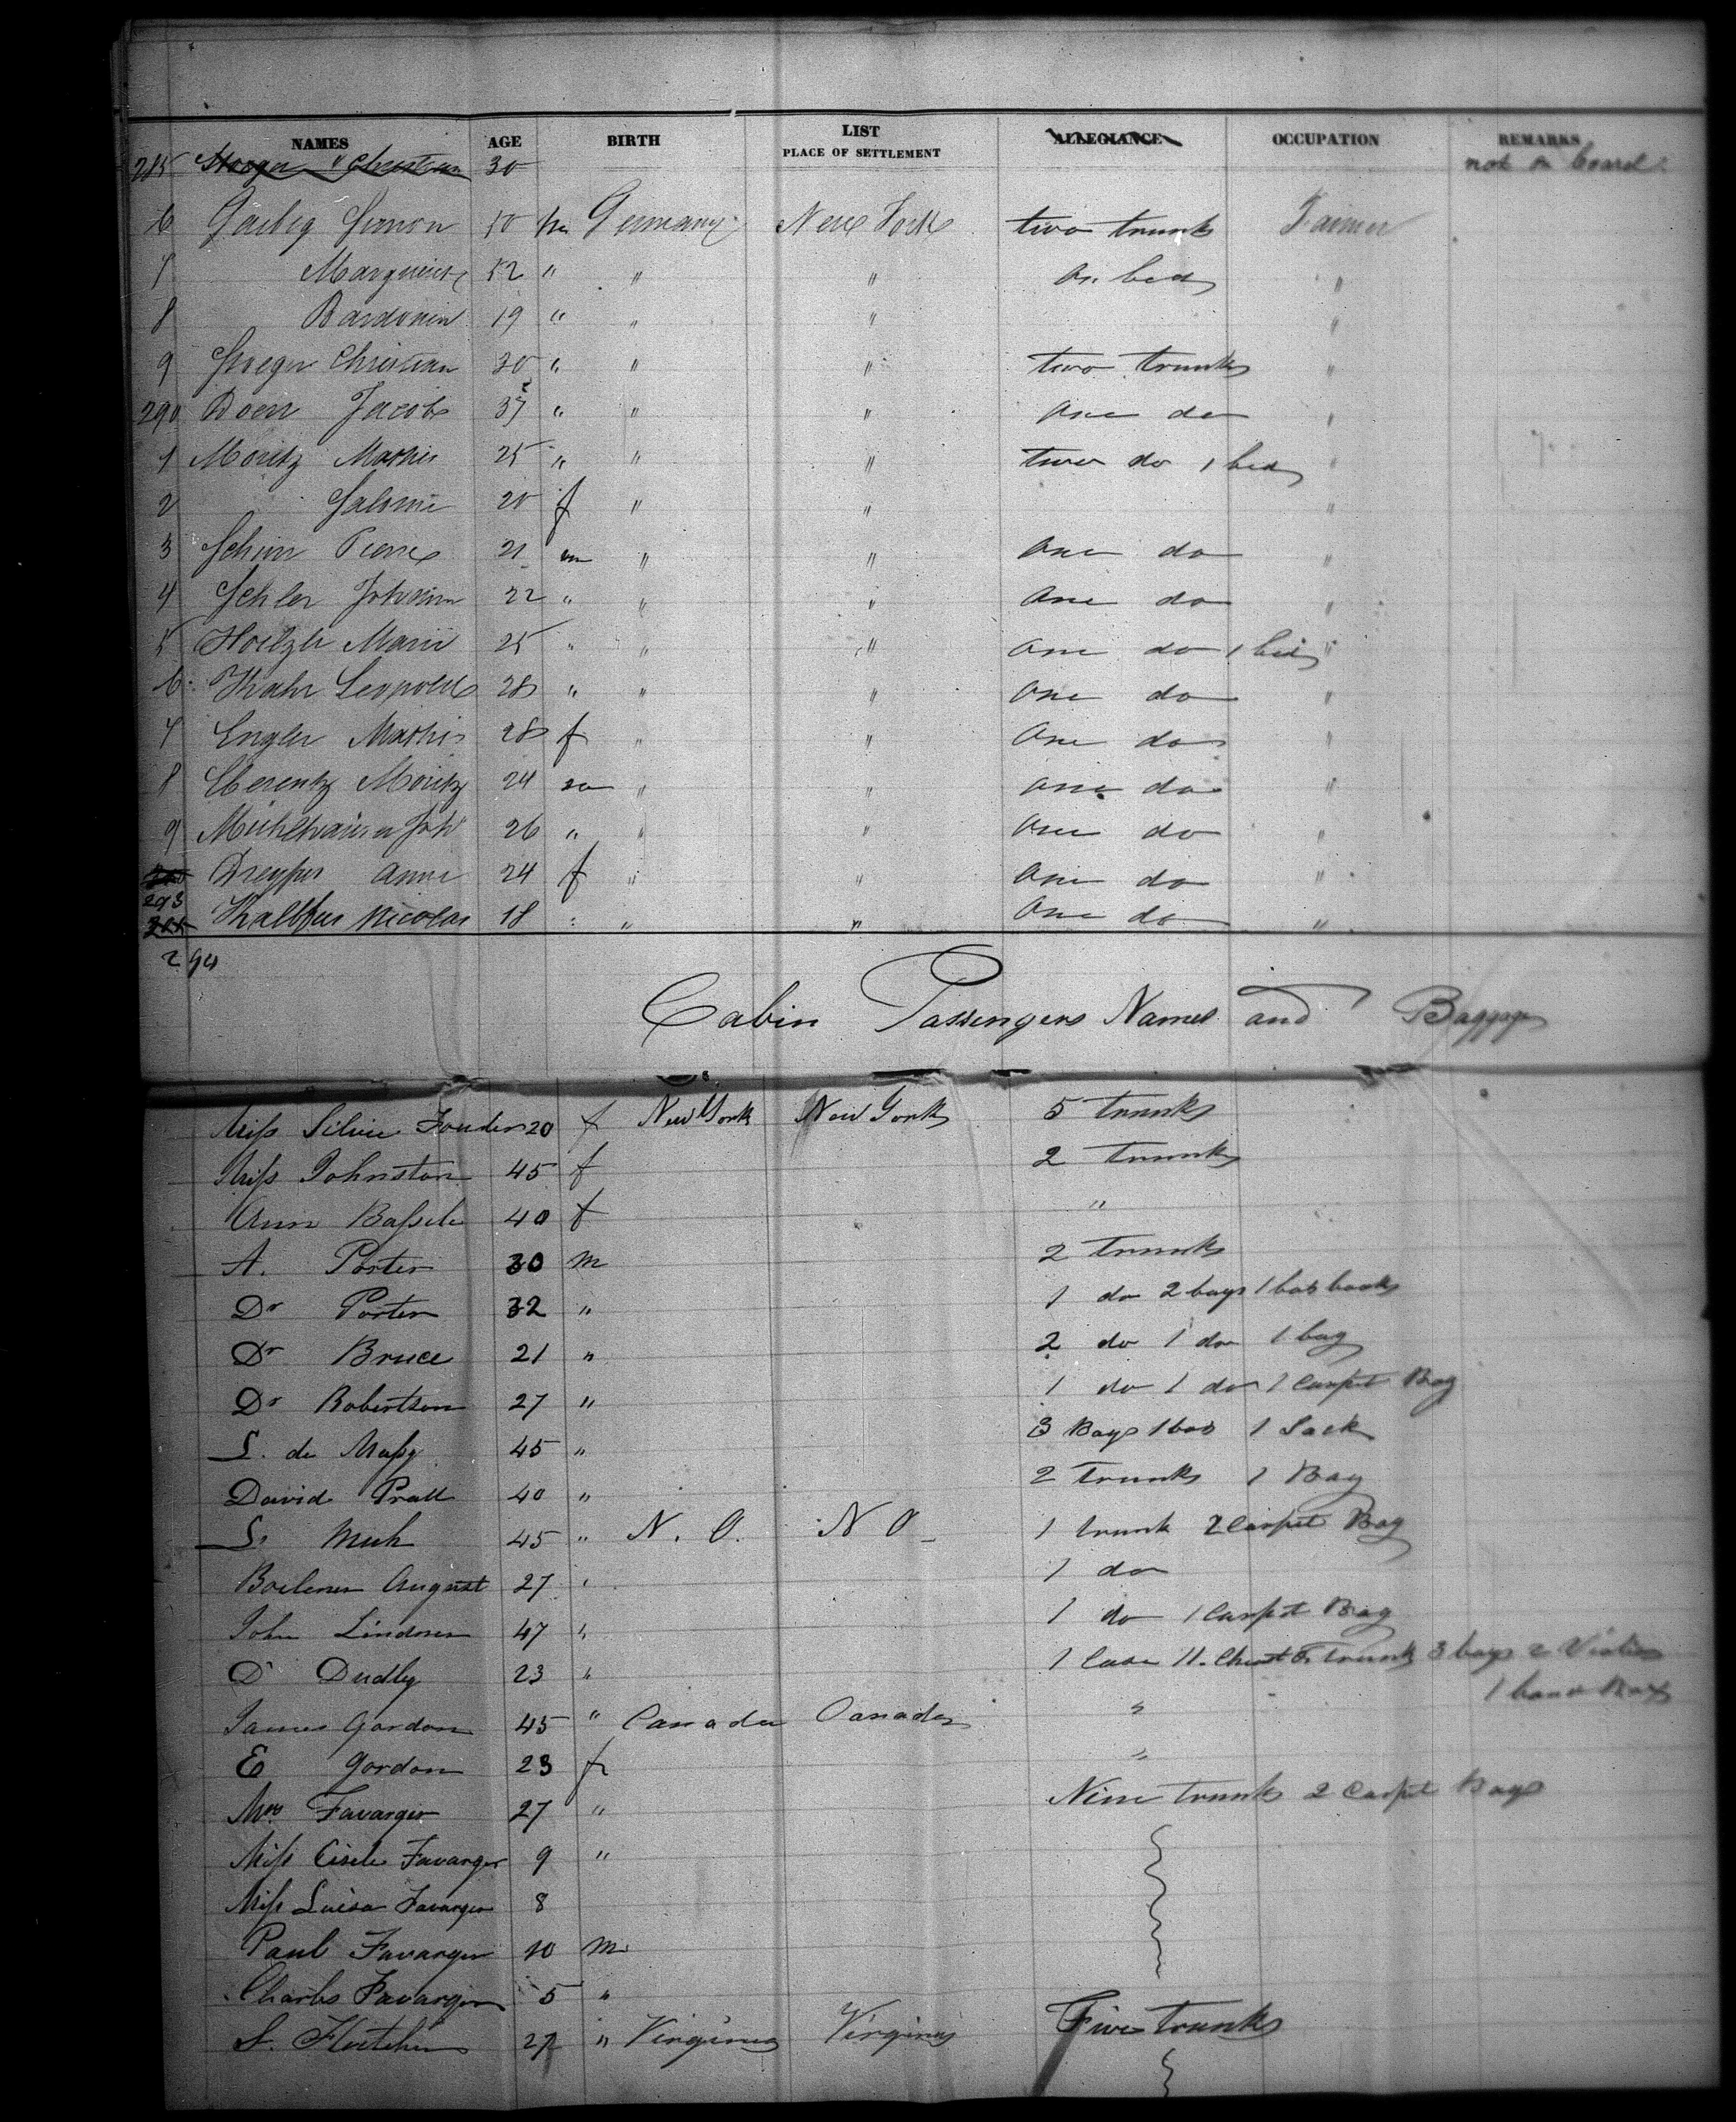 LIST
NAMES AGE BIRTH PLACE OF SETTLEMENT ALLEGIANCE OCCUPATION REMARKS
285 Christian 30 not on board
6 Simon 50 m Germany New York two trunks Farmer
7 Marguerite 52 " " " on bed "
8 19 " " " "
9 Christian 30 " " " two trunks "
290 Doerr Jacob 37 " " " One do "
1 Moritz Mathis 25 " " " two do 1 bed "
2 Salomé 20 f " " "
3 Schirr Pierre 21 m " " One do "
4 Johann 22 " " " One do "
5 Hoelzle Marie 25 " " " One do 1 bed "
6 Leopold 28 " " " One do "
7 Engler Mathis 28 f " " One do "
8 Moritz 24 m " " one do "
9 Muhlhauser Joh 26 " " " One do "
293 Dreyfus Anne 24 f " " One do "
294 Nicolas 18 " " " One do "
Cabin Passengers Names and Baggage
Miss Silvie 20 f New York New York 5 trunks
Miss Johnston 45 f 2 trunks
Ann 40 f "
A. Porter 30 m 2 trunks
Dr Porter 32 " 1 do 2 bags 1 box books
Dr Bruce 21 " 2 do 1 do 1 bag
Dr Robertson 27 " 1 do 1 do 1 Carpet Bag
L. de Massy 45 " 3 Bags 1 box 1 Sack
David Pratt 40 " 2 Trunks 1 Bag
45 " N. O. N O 1 trunk 2 Carpet Bag
August 27 " 1 do
John Lindner 47 " 1 do 1 Carpet Bag
D Dudley 23 " 1 Case 11 Chest trunks 3 bags 2
James Gordon 45 " Canada Canada " 1 band Box
E Gordon 23 f "
Mrs Favarger 27 " Nine trunks 2 Carpet Bags
Miss Favarger 9 "
Miss Luisa Favarger 8
Paul Favarger 10 m
Charles Favarger 5 "
S. Fletcher 27 " Virginia Virginia Five trunks